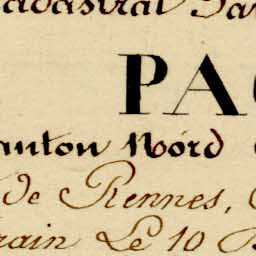 adastral Pa
PAC
anton Nord
de Rennes,
rain Le 10